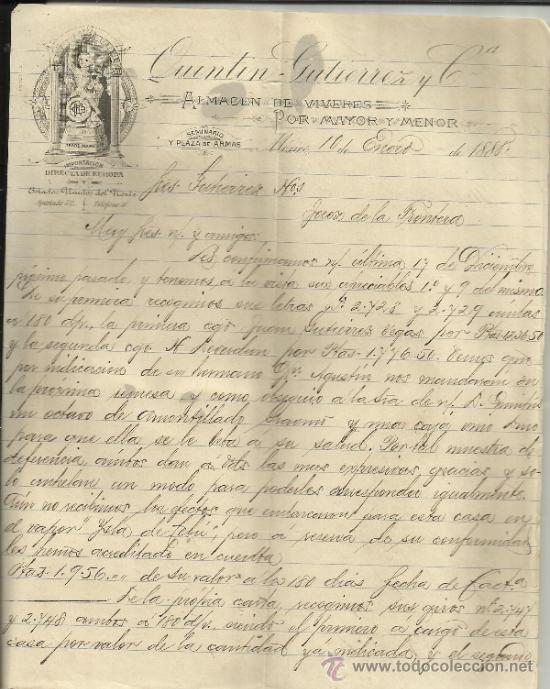 Quintin Gutierrez y Cª
ALMACEN DE VIVERES
POR MAYOR Y MENOR
SEMINARIO
Y PLAZA DE ARMAS
IMPORTACION
DIRECTA DE EUROPA
Y
Estados Unidos del Norte
Apartado Teléfono
10 de Enero de 1888.
Sres Gutierrez Hos
Jerez de la Frontera
Muy Sres n/ y amigos:
Les confirmamos n/ última 17 de Diciembre
próximo pasado, y tenemos á la vista sus apreciables 1º y 9 del mismo.
De su primera recogemos sus letras nº 2.728 y 2.729 ambas
a 180 d/v. la primera cgo Juan Gutierrez por Ptas
y la segunda cgo por Ptas. 1.776.50. Vemos que
por indicacion de su hermano Dn Agustin nos mandaran en
la próxima remesa y como obsequio a la Sra de n/ D.
un octavo de amontillado y una caja vino
para que ella se lo beba a su salud. Por tal muestra de
deferencia, ambos dan a Vds las mas expresivas gracias, y so-
lo anhelan un modo para poderles corresponder igualmente.
Aun no recibimos los efectos que embarcaron para esta casa en
el vapor "Isla de Cebú", pero a reserva de su conformidad
les hemos acreditado en cuenta
Ptas. 1.956.,, de su valor a los 180 dias fecha de Facta
De la própia carta, recogemos sus giros nº 2.747
y 2.748 ambos a 180 d/v. siendo el primero a cargo de esta
casa por valor de la cantidad ya indicada, y el segundo
todocoleccion.net